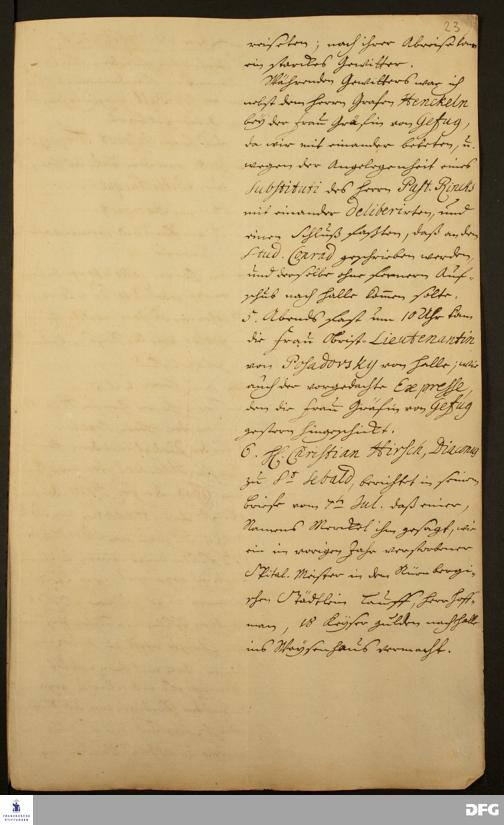 23
reiseten; nach ihrer Abreise kam
ein starckes Gewitter.
Währenden Gewitters war ich
nebst dem Herrn Grafen Henckeln
bey der Frau Gräfin von Gefug,
da wir mit einander beteten, u.
wegen der Angelegenheit eines
Substituti des Herrn Past. Rincks
mit einander deliberirten, und
einen Schluß faßten, daß an den
Stud. Conrad geschrieben werden,
und derselbe ohne fernern Auf-
schub nach Halle kommen solte.
5. Abends fast um 10 Uhr kam
die Frau Obrist-Lieutenantin
von Posadovsky von Halle; wie
auch der vorgedachte Expresse,
den die Frau Gräfin von Gefug
gestern hingeschickt.
6. H. Christian Hirsch, Diaconus
zu St Sebald, berichtet in seinem
Briefe vom 7ten Jul. daß einer,
Namens Merckel ihm gesagt, wie
ein im vorigen Jahr verstorbener
Spital-Meister in dem Nürnbergi-
schen Städtlein Lauff, Herr Hoff-
man, 18 Keyser gulden nach Halle
ins Waysenhaus vermacht.
FRANCKESCHE
STIFTUNGEN
DFG